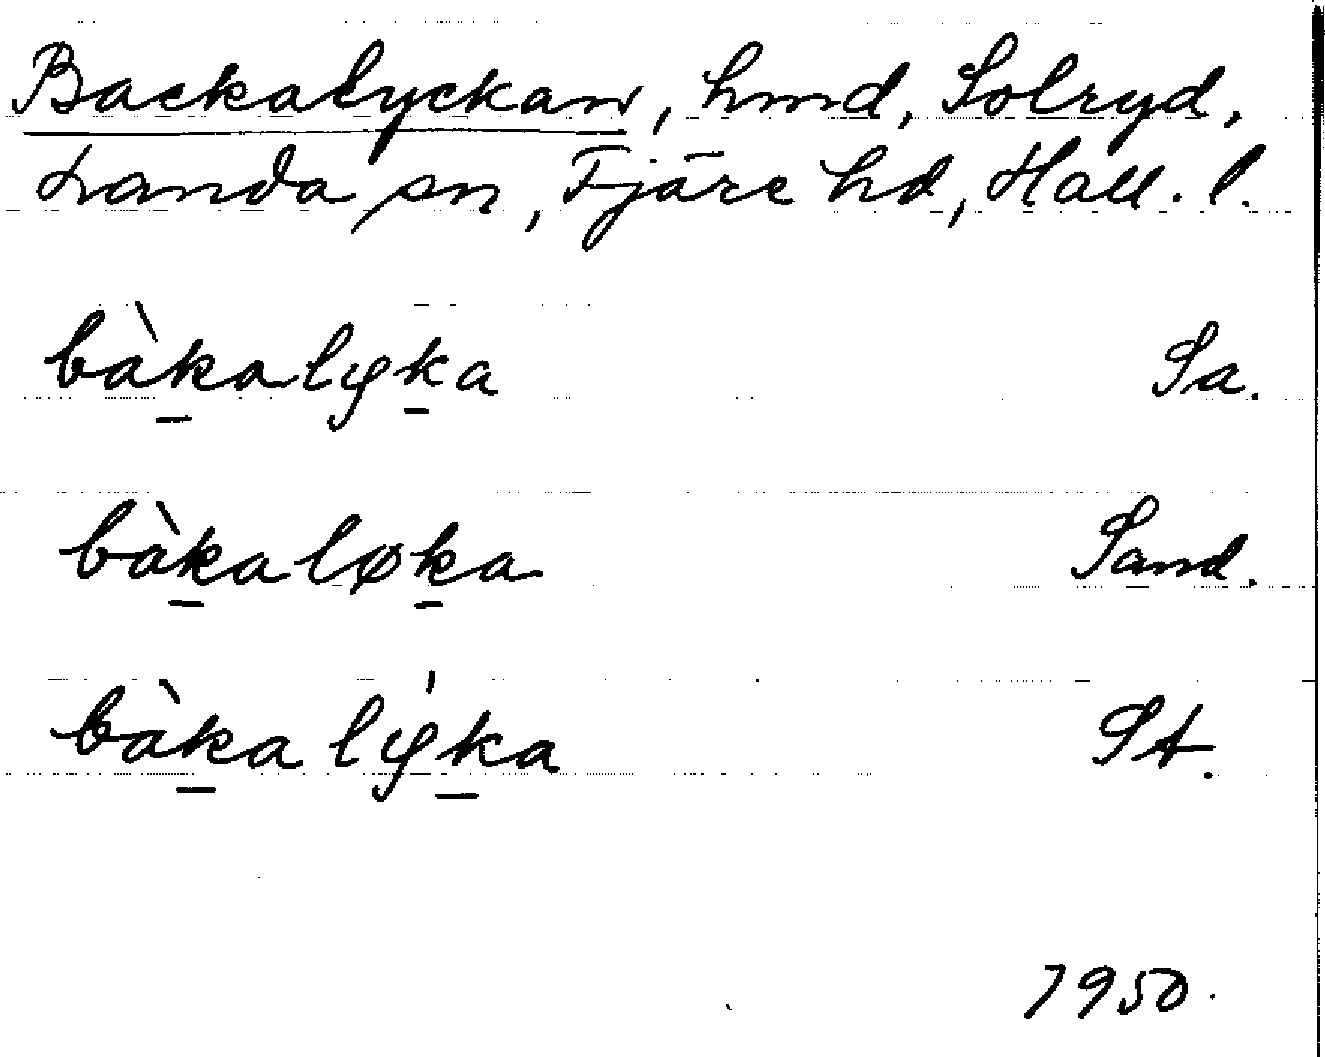 Backalyckan, hmd, Solryd,
Landa sn, Fjäre hd, Hall. l.
bàk̠alyk̠a Sa.
bàk̠aløk̠a Sand.
bàk̠alýk̠a St.
1950.